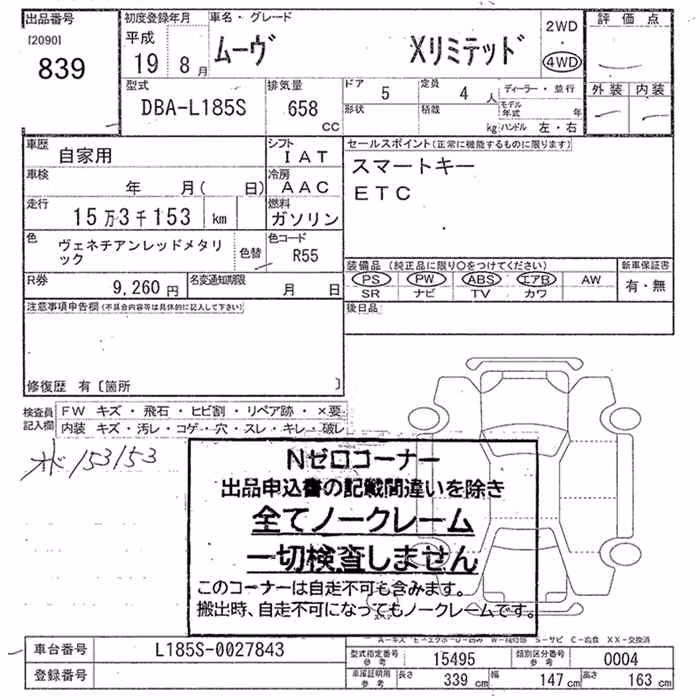 出品番号
[2090]
839
初度登録年月
平成
19 8月
車名・グレード
ムーヴ Xリミテッド
2WD
4WD
評価点
外装 内装
型式
DBA-L185S
排気量
658 cc
ドア 5
定員 4 人
形状 積載 kg
ディーラー・並行
モデル年式 年
ハンドル 左・右
車歴
自家用
シフト
IAT
車検
年 月( 日)
冷房
AAC
走行
15万3千153 km
燃料
ガソリン
色
ヴェネチアンレッドメタリ
ック
色替
色コード
R55
R券
9,260 円
名変通知期限
月 日
セールスポイント(正常に機能するものに限ります)
スマートキー
ETC
装備品 (純正品に限り○をつけてください)
PS PW ABS エアB AW
SR ナビ TV カワ
新車保証書
有・無
注意事項申告欄(不具合内容等は具体的に記入して下さい)
後日品
修復歴 有〔箇所 〕
検査員
記入欄
FW キズ・飛石・ヒビ割・リペア跡・×要
内装 キズ・汚レ・コゲ・穴・スレ・キレ・破レ
オド153153
Nゼロコーナー
出品申込書の記載間違いを除き
全てノークレーム
一切検査しません
このコーナーは自走不可も含みます。
搬出時、自走不可になってもノークレームです。
車台番号
L185S-0027843
登録番号
型式指定番号
参考
15495
類別区分番号
参考
0004
車庫証明用
参考
長さ 339 cm 幅 147 cm 高さ 163 cm